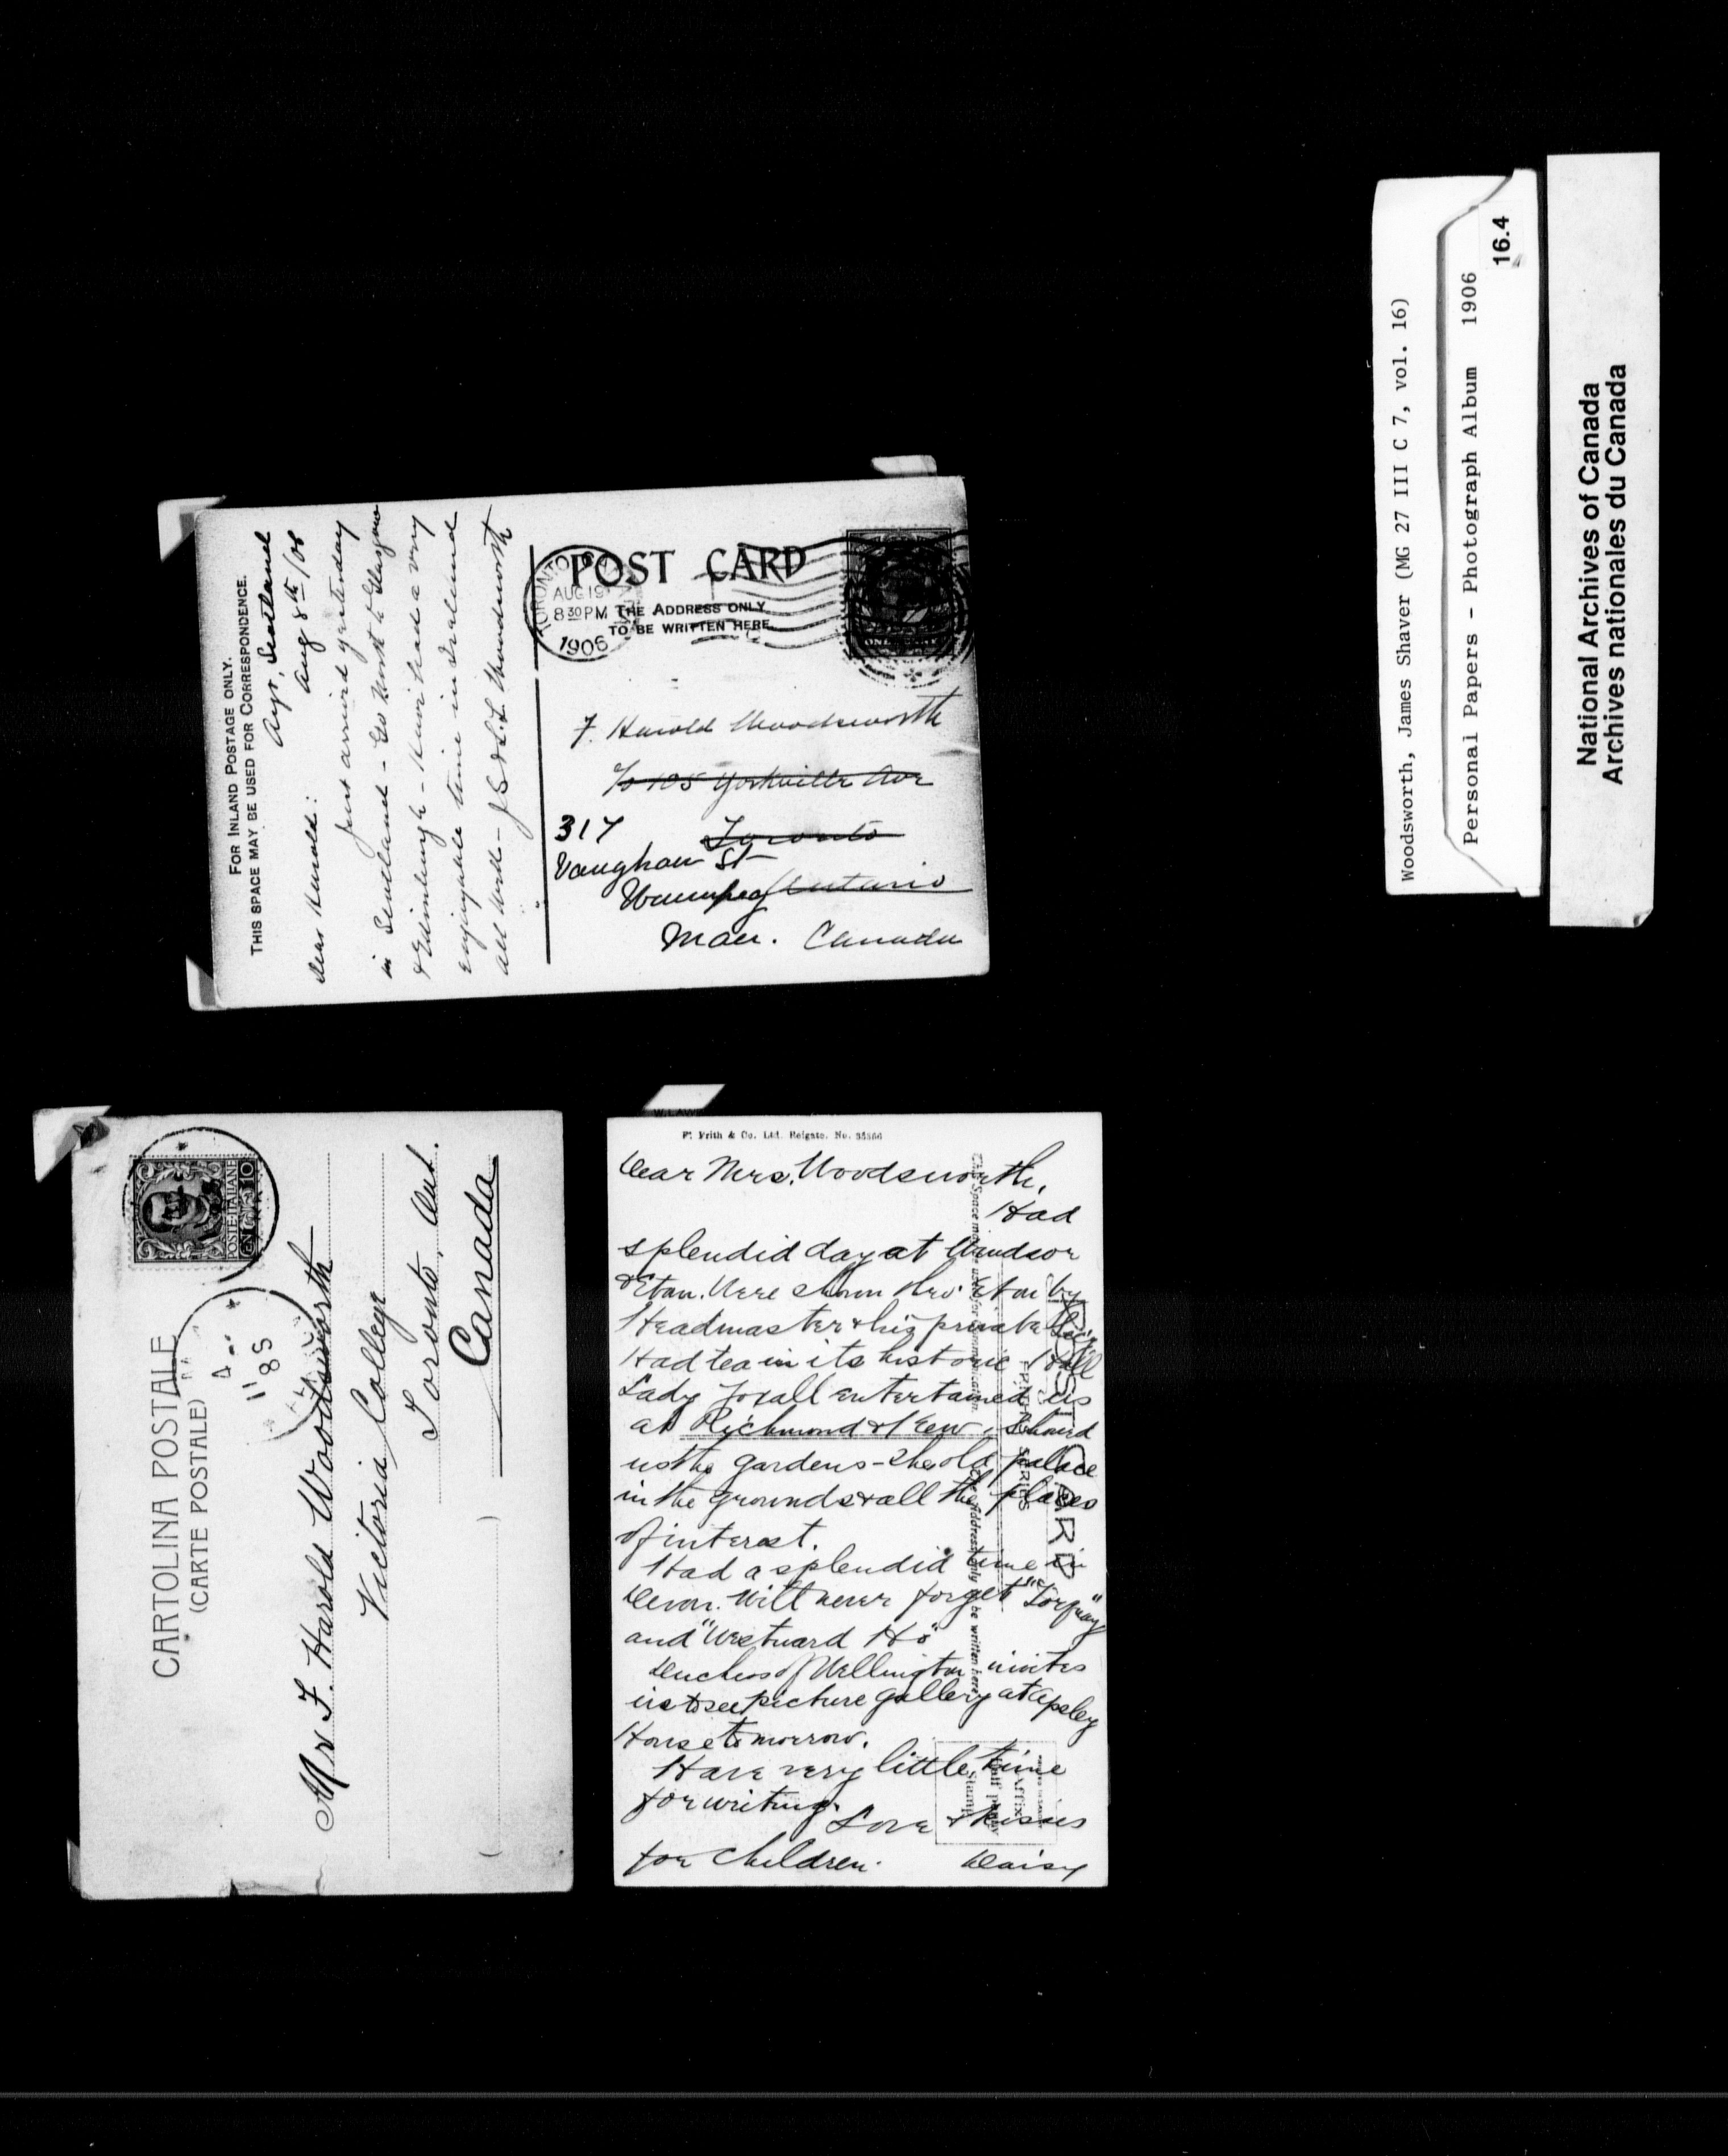 Woodsworth, James Shaver (MG 27 III C 7, vol. 16)
Personal Papers - Photograph Album 1906
16.4
National Archives of Canada
Archives nationales du Canada
FOR INLAND POSTAGE ONLY.
THIS SPACE MAY BE USED FOR CORRESPONDENCE.
Ayr, Scotland
Aug 8th/06
Dear Harold:
Just arrived yesterday
in Scotland - Go North to Glasgow
& Edinburgh - Have had a very
enjoyable time in Ireland
all well - J.S. & L. Woodsworth
POST CARD
THE ADDRESS ONLY
TO BE WRITTEN HERE
TORONTO
AUG 19
8 30 PM
1906
F. Harold Woodsworth
c/o 105 Yorkville Ave
Toronto
317
Vaughan St
Winnipeg Ontario
Man. Canada
CARTOLINA POSTALE
(CARTE POSTALE)
POSTE ITALIANE
Mr F. Harold Woodsworth
Victoria College
Toronto, Ont.
Canada
F. Frith & Co. Ltd. Reigate. No.
Dear Mrs. Woodsworth,
Had
splendid day at Windsor
& Eton. Were shown thro' Eton by
Headmaster & his private
Had tea in its historic Hall
Lady entertained us
at Richmond & Kew, showed
us the gardens - the old palace
in the grounds & all the places
of interest.
Had a splendid time in
Devon. Will never forget "Torquay"
and "Westward Ho"
Duchess of Wellington invites
us to see picture gallery at Apsley
House tomorrow.
Have very little time
for writing.
Love & kisses
for children. Daisy
POST CARD
SERIES
Affix
Stamp